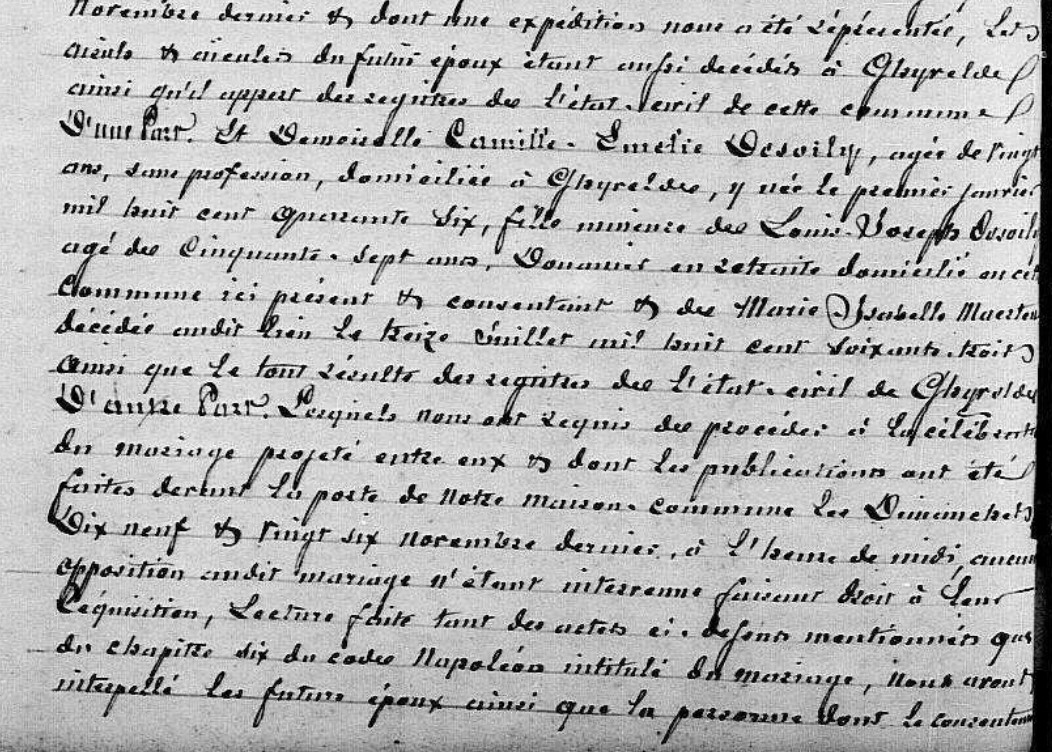 Novembre dernier & dont une expédition nous a été réprésentée, Les
aieuls & aieules du futur époux étant aussi décédés à Ghyvelde
ainsi qu'il appert des registres de l'état-civil de cette commune
D'une Part. Et Demoiselle Camille-Emélie Desoily, agée de vingt
ans, sans profession, domiciliée à Ghyvelde, y née le premier janvier
mil huit cent quarante six, fille mineure de Louis-Joseph Desoily
agé de Cinquante-sept ans, Douanier en retraite domicilié en cette
Commune ici présent & consentant & de Marie Ysabelle
décédée audit lieu le treize Juillet mil huit cent soixante-trois
ainsi que le tout résulte des registres de l'état-civil de Ghyvelde
D'autre Part. Lesquels nous ont requis de procéder à la célébration
du mariage projeté entre eux & dont les publications ont été
faites devant la porte de notre maison-commune les Dimanches
Dix neuf & vingt six novembre dernier, à l'heure de midi, aucune
opposition audit mariage n'étant intervenue faisant droit à leur
Réquisition, Lecture faite tant des actes ci-dessus mentionnés que
du chapitre six du code Napoléon intitulé du mariage, nous avons
interpellé les futurs époux ainsi que la personne dont le consentement